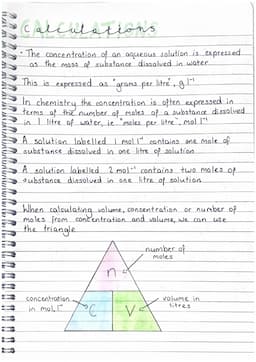 CALCULATIONS
Calculations
· The concentration of an aqueous solution is expressed
as the mass of substance dissolved in water
This is expressed as "grams per litre", g l⁻¹
In chemistry the concentration is often expressed in
terms of the number of moles of a substance dissolved
in 1 litre of water, ie "moles per litre", mol l⁻¹
A solution labelled 1 mol l⁻¹ contains one mole of
substance dissolved in one litre of solution
A solution labelled 2 mol l⁻¹ contains two moles of
substance dissolved in one litre of solution
When calculating volume, concentration or number of
moles from concentration and volume, we can use
the triangle
number of
moles
n
concentration
in mol l⁻¹
C
V
volume in
litres